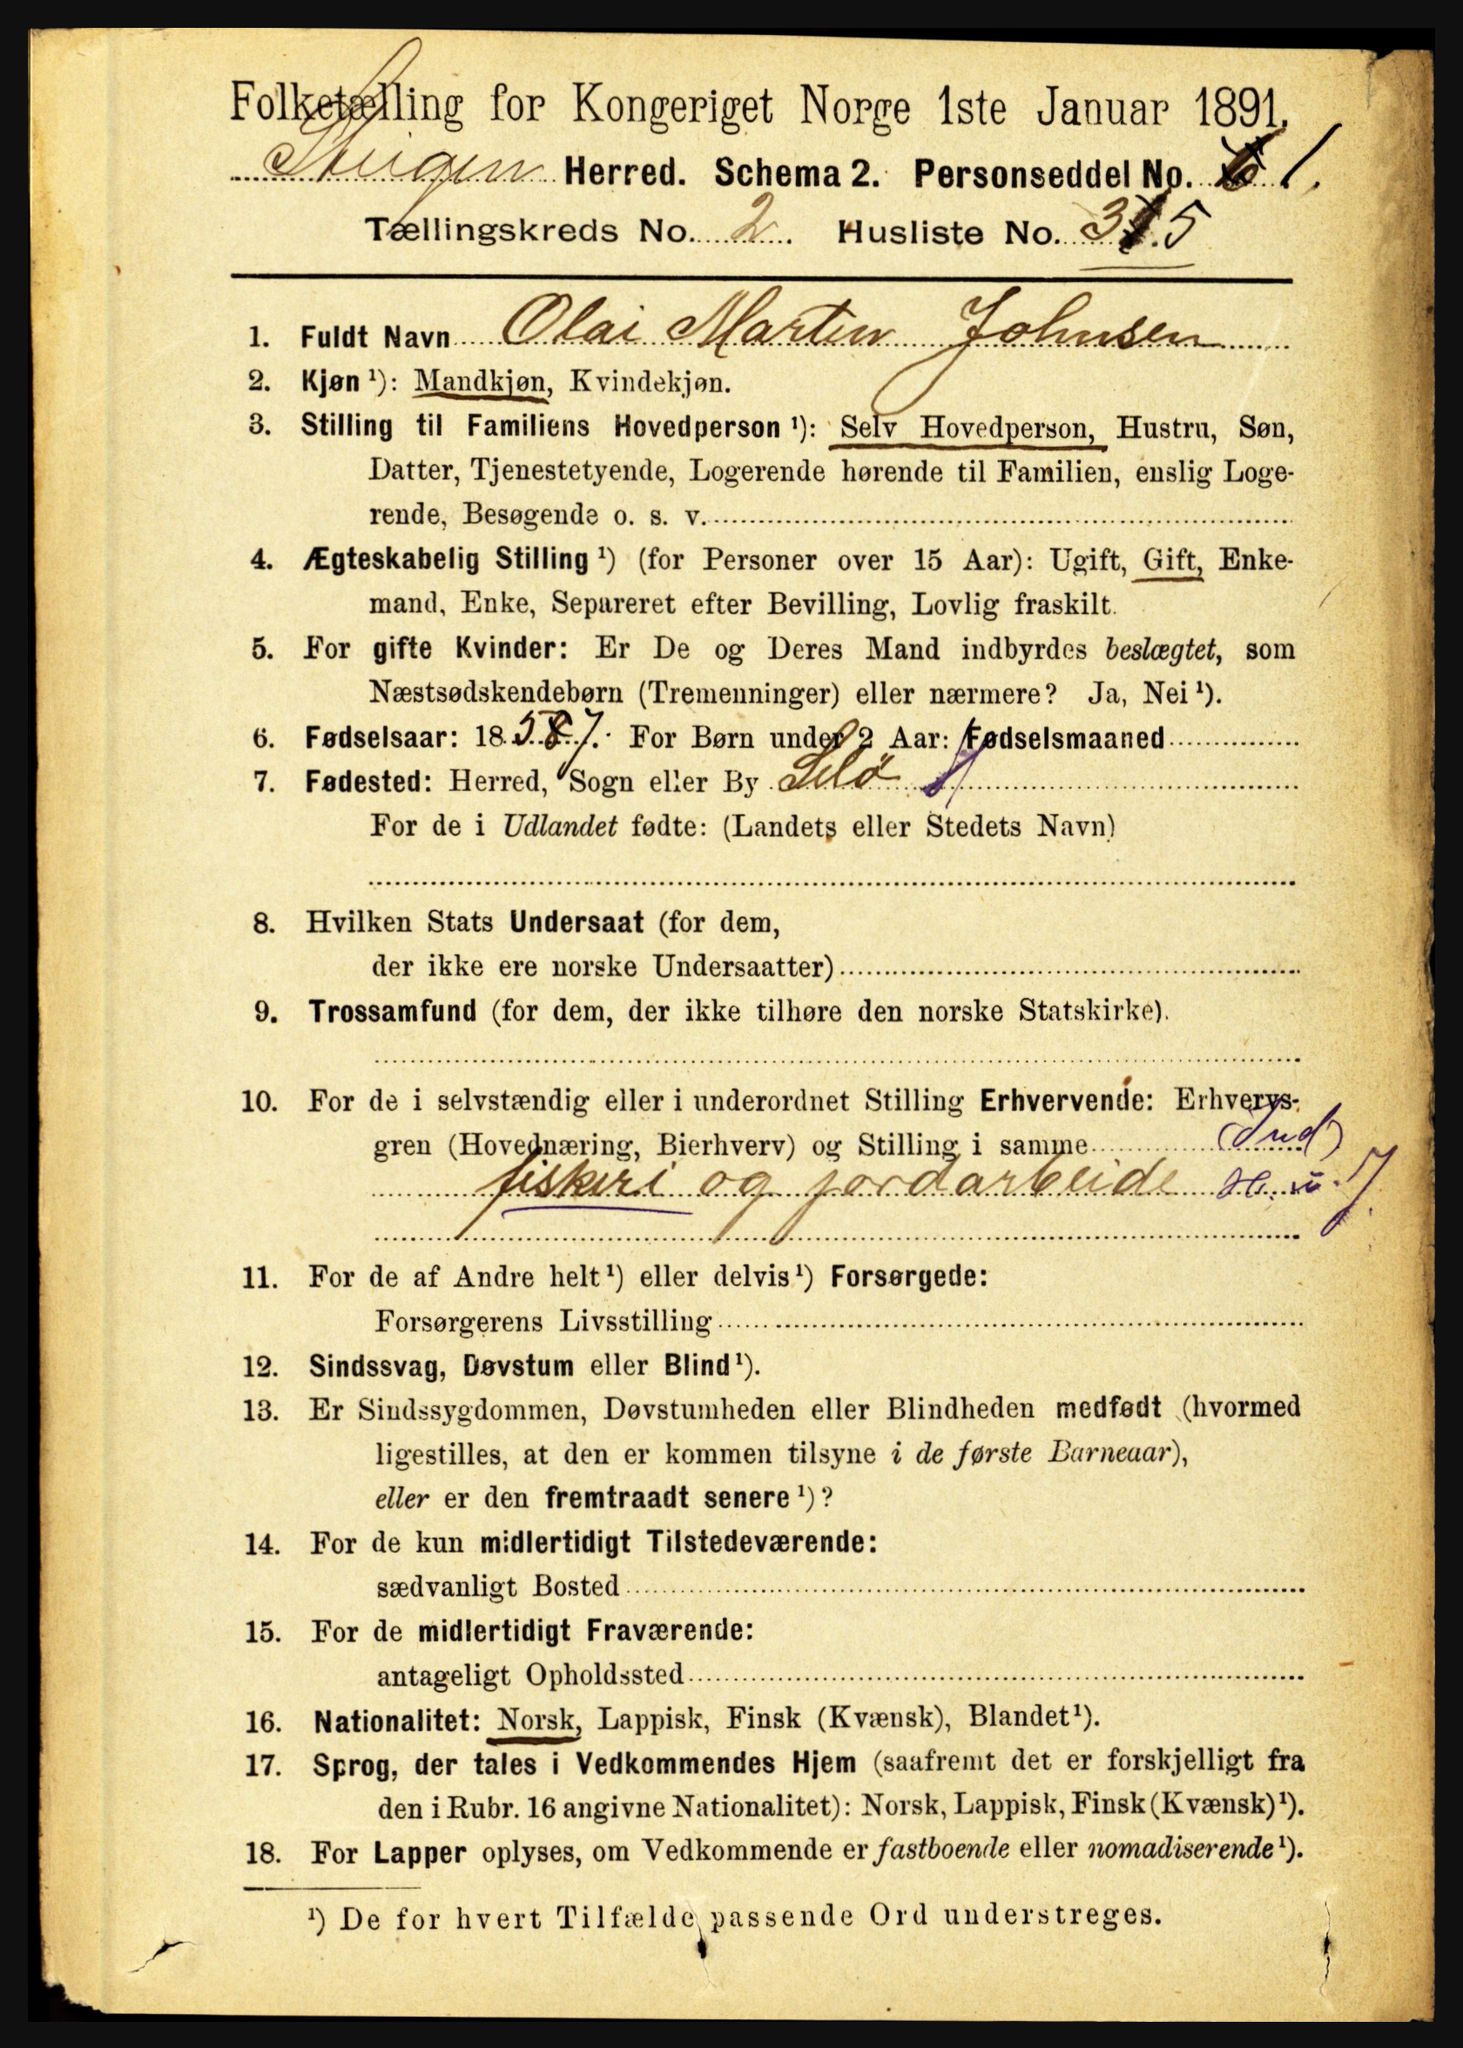 Folketælling for Kongeriget Norge 1ste Januar 1891.
Steigen Herred. Schema 2. Personseddel No. 1.
Tællingskreds No. 2. Husliste No. 35
1. Fuldt Navn Olai Martin Johnsen
2. Kjøn ¹): Mandkjøn, Kvindekjøn.
3. Stilling til Familiens Hovedperson ¹): Selv Hovedperson, Hustru, Søn,
Datter, Tjenestetyende, Logerende hørende til Familien, enslig Loge-
rende, Besøgende o. s. v.
4. Ægteskabelig Stilling ¹) (for Personer over 15 Aar): Ugift, Gift, Enke-
mand, Enke, Separeret efter Bevilling, Lovlig fraskilt.
5. For gifte Kvinder: Er De og Deres Mand indbyrdes beslægtet, som
Næstsødskendebørn (Tremenninger) eller nærmere? Ja, Nei ¹).
6. Fødselsaar: 1857. For Børn under 2 Aar: Fødselsmaaned
7. Fødested: Herred, Sogn eller By Selø
For de i Udlandet fødte: (Landets eller Stedets Navn)
8. Hvilken Stats Undersaat (for dem,
der ikke ere norske Undersaatter)
9. Trossamfund (for dem, der ikke tilhøre den norske Statskirke).
10. For de i selvstændig eller i underordnet Stilling Erhvervende: Erhvervs-
gren (Hovednæring, Bierhverv) og Stilling i samme
fiskeri og jordarbeide
11. For de af Andre helt ¹) eller delvis ¹) Forsørgede:
Forsørgerens Livsstilling
12. Sindssvag, Døvstum eller Blind ¹).
13. Er Sindssygdommen, Døvstumheden eller Blindheden medfødt (hvormed
ligestilles, at den er kommen tilsyne i de første Barneaar),
eller er den fremtraadt senere ¹)?
14. For de kun midlertidigt Tilstedeværende:
sædvanligt Bosted
15. For de midlertidigt Fraværende:
antageligt Opholdssted
16. Nationalitet: Norsk, Lappisk, Finsk (Kvænsk), Blandet ¹).
17. Sprog, der tales i Vedkommendes Hjem (saafremt det er forskjelligt fra
den i Rubr. 16 angivne Nationalitet): Norsk, Lappisk, Finsk (Kvænsk) ¹).
18. For Lapper oplyses, om Vedkommende er fastboende eller nomadiserende ¹).
¹) De for hvert Tilfælde passende Ord understreges.